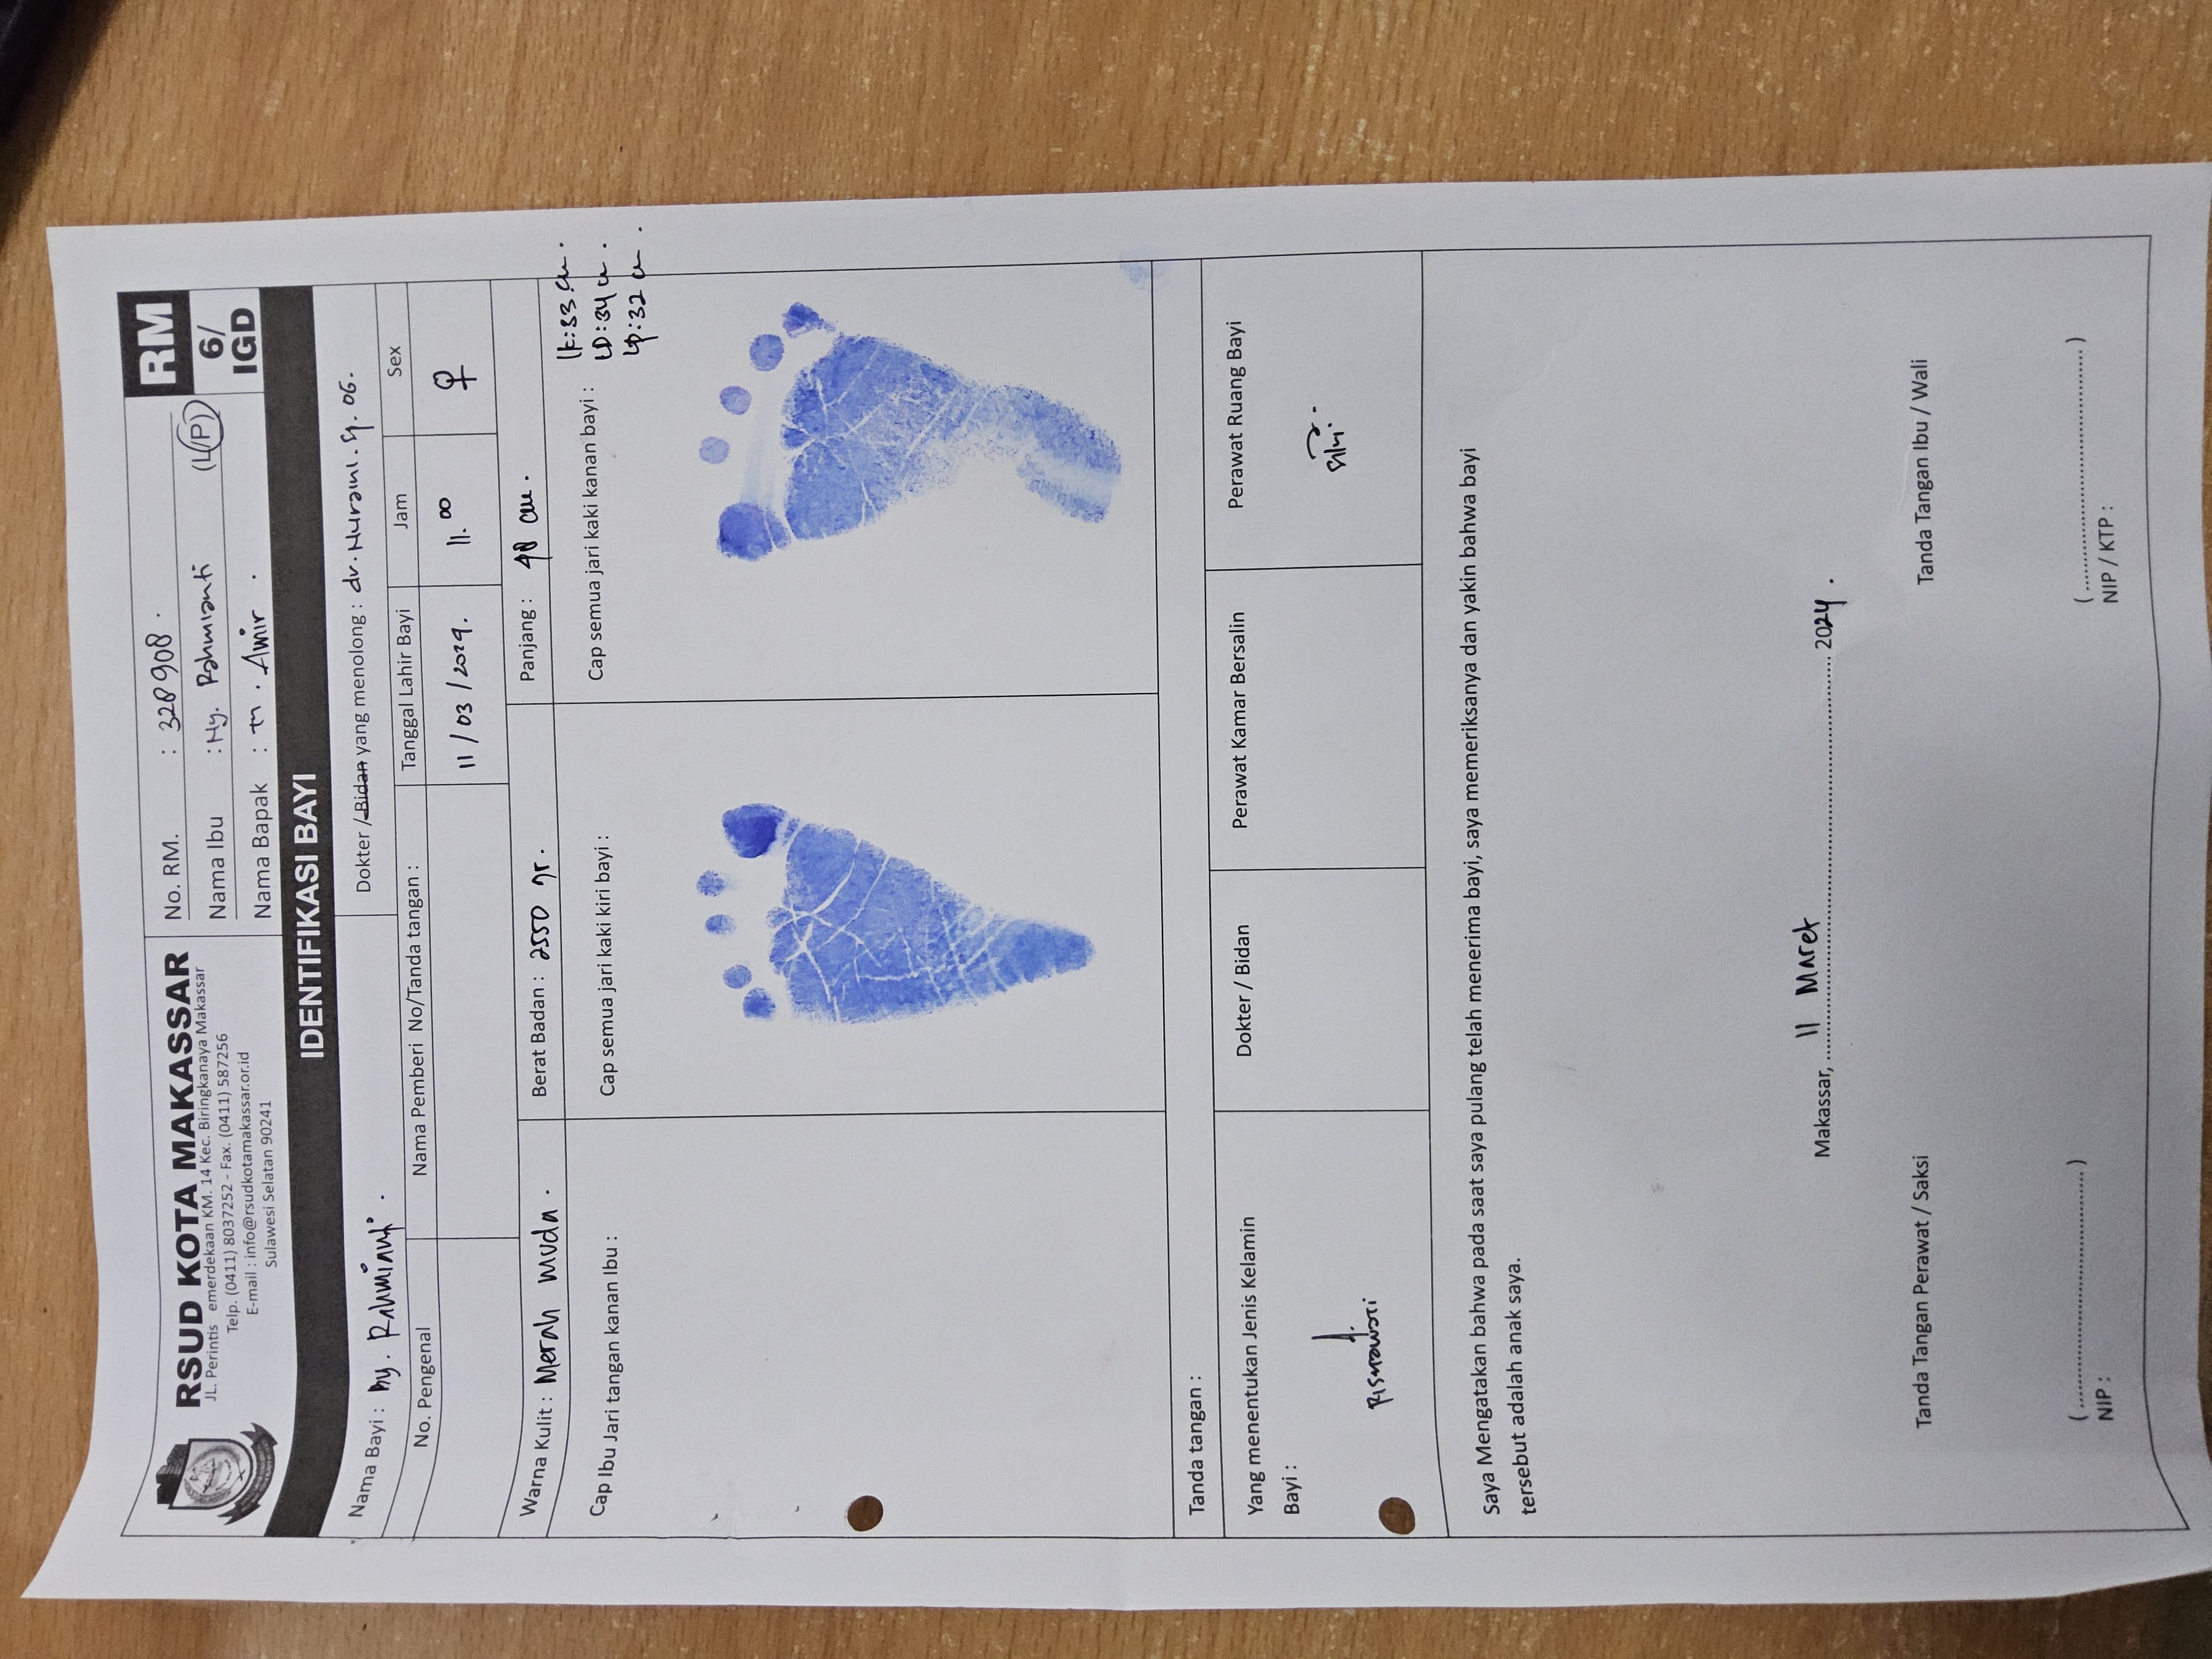 RSUD KOTA MAKASSAR
JL. Perintis emerdekaan KM. 14 Kec. Biringkanaya Makassar
Telp. (0411) 8037252 - Fax. (0411) 587256
E-mail : info@rsudkotamakassar.or.id
Sulawesi Selatan 90241
No. RM. : 328908
Nama Ibu : Ny. Rahmianti (L/P)
Nama Bapak : Tn. Amir
RM
6/
IGD
IDENTIFIKASI BAYI
Nama Bayi : By. Rahmianti
Dokter / Bidan yang menolong : dr. Nuraini. Sp. OG.
No. Pengenal
Nama Pemberi No/Tanda tangan :
Tanggal Lahir Bayi
Jam
Sex
11 / 03 / 2024.
11.00
♀
Warna Kulit : Merah muda .
Berat Badan : 2550 gr.
Panjang : 48 cm .
Cap Ibu Jari tangan kanan Ibu :
Cap semua jari kaki kiri bayi :
Cap semua jari kaki kanan bayi :
LK : 33 cm .
LD : 34 cm .
LP : 32 cm .
Tanda tangan :
Yang menentukan Jenis Kelamin
Bayi :
Dokter / Bidan
Perawat Kamar Bersalin
Perawat Ruang Bayi
Risnawati
Saya Mengatakan bahwa pada saat saya pulang telah menerima bayi, saya memeriksanya dan yakin bahwa bayi
tersebut adalah anak saya.
Makassar, 11 Maret 2024 .
Tanda Tangan Perawat / Saksi
Tanda Tangan Ibu / Wali
(........................................)
(........................................)
NIP :
NIP / KTP :